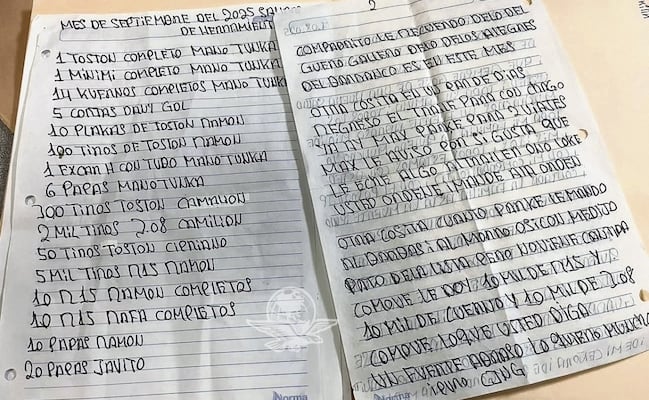 MES DE SEPTIEMBRE DEL 2025 SALIO
DE HERRAMIENTA
1 TOSTON COMPLETO MANO TUNKA
1 MINIMI COMPLETO MANO TUNKA
14 KUERNOS COMPLETOS MANO TUNKA
5 CORTAS DAVI GOL
10 PLAKAS DE TOSTON RAMON
190 TIROS DE TOSTON RAMON
1 EXCAR H CON TUBO MANO TUNKA
6 PAPAS MANO TUNKA
300 TIROS TOSTON CAMALION
2 MIL TIROS 2.08 CAMILION
50 TIROS TOSTON CIPRIANO
5 MIL TIROS R15 RAMON
10 R15 RAMON COMPLETOS
10 R15 RAFA COMPLETOS
10 PAPAS RAMON
20 PAPAS JAVITO
Norma
2
COMPADRITO LE RECUERDO DELO DEL
GUERO GALLERO DELO DELOS AREGRES
DEL BARDANCO ES EN ESTE MES
OTRA COSITA EN UN PAR DE DIAS
REGRESO EL TRAIE PARA CON CHAGO
YA MY MAX PARKE PARA DISIATES
MAX LE AVISO POR SI GUSTA QUE
LE ECHE ALGO ALMACEN ONO
USTED ORDENE IMANDE AUN ORDEN
OTRA COSITA CUANTO PARKE LE MANDO
AL BARDAS I AL MANO OSI CON MEDIJO
PATO DELA LISTA PERO NO VIENE CANTIDA
COMOVE LE DOI 10 MIL DE R15 Y
10 MIL DE CUERNO Y 10 MIL DE 2.08
COMOVE LO QUE USTED DIGA
UN FUERTE ABRASO LO QUIERO MUCHO
CJNG
Norma